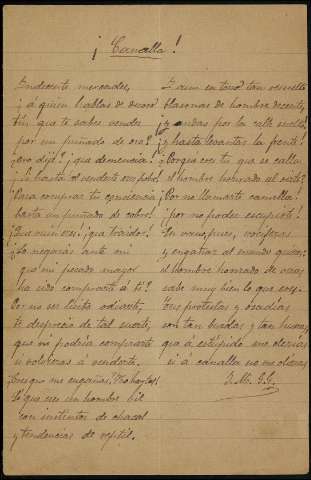 ¡Canalla!
Indecente mercader,
¿á quién hablas de
tú que te sabes vender
por un puñado de oro?
¿oro dije? ¡qué demencia!
¡Si hasta al venderte eres pobre!
Para comprar tu conciencia
basta un puñado de cobre!
¡Qué ruin eres! ¡qué traidor!
¿Lo negarás ante mí
que mi pecado mayor
ha sido comprarte á tí?
Por no ser lícito odiarte
te desprecio de tal suerte,
que no podría comprarte
si volvieras á venderte.
¿Creíste que me engañas? ¡No hay tal!
Sé que eres un hombre vil
con instintos de chacal
y tendencias de reptil.
Y aun en tono tan resuelto
blasonas de hombre decente,
¡y andas por la calle suelto!
¡y hasta levantas la frente!
¡Porque eres tú que se calla
el hombre honrado al
¡Por no llamarte canalla!
¡por no poder escupirte!
En vano, pues, vociferas
y engañar al mundo quieres;
el hombre honrado de veras
sabe muy bien lo que eres.
Tus protestas y osadías
son tan burdas y tan hueras,
que á estúpido me olerías
si á canalla no me olieras